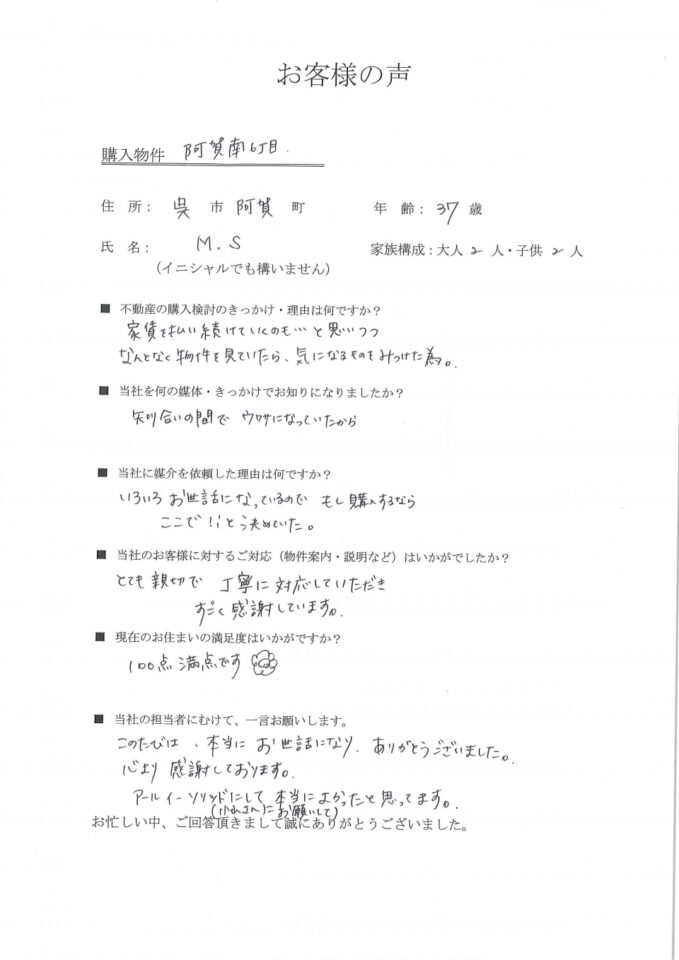 お客様の声
購入物件 阿賀南6丁目.
住 所: 呉 市 阿賀 町 年 齢: 37 歳
氏 名: M.S 家族構成:大人 2 人・子供 2 人
(イニシャルでも構いません)
■ 不動産の購入検討のきっかけ・理由は何ですか?
家賃を払い続けていくのも…と思いつつ
なんとなく物件を見ていたら、気になるものをみつけた為。
■ 当社を何の媒体・きっかけでお知りになりましたか?
知り合いの間で ウワサになっていたから
■ 当社に媒介を依頼した理由は何ですか?
いろいろ お世話になっているので もし購入するなら
ここで!!と決めていた。
■ 当社のお客様に対するご対応(物件案内・説明など)はいかがでしたか?
とても 親切で 丁寧に対応していただき
すごく感謝しています。
■ 現在のお住まいの満足度はいかがですか?
100点 満点です
■ 当社の担当者にむけて、一言お願いします。
このたびは、本当に お世話になり、ありがとうございました。
心より 感謝しております。
アールイーソリッドにして 本当によかったと思ってます。
さん)にお願いして)
お忙しい中、ご回答頂きまして誠にありがとうございました。